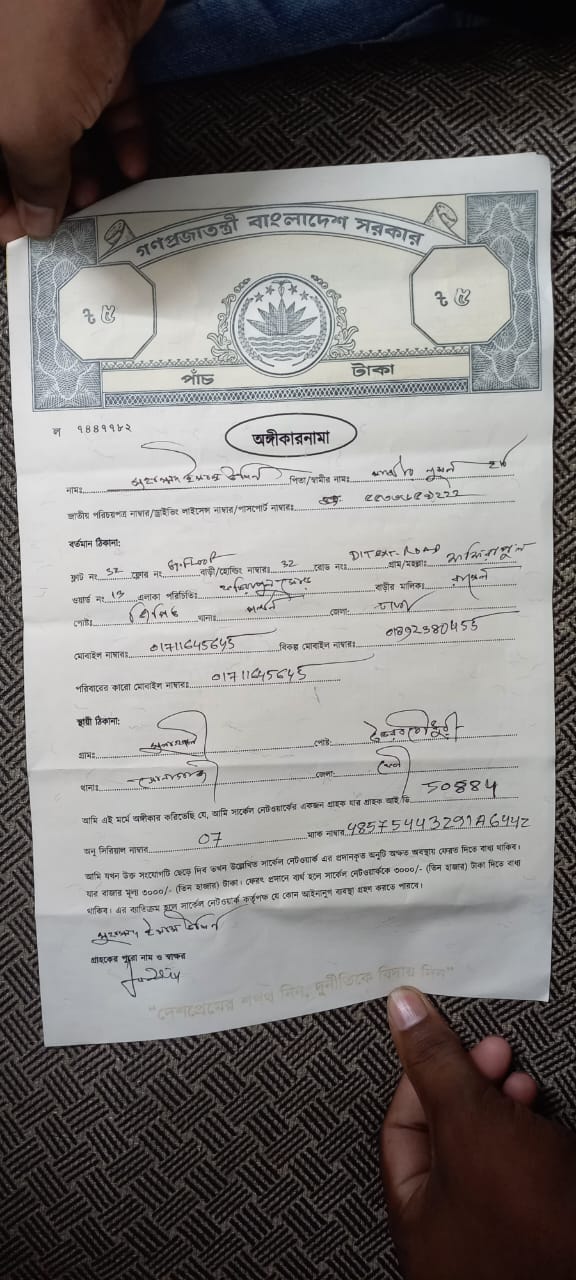 গণপ্রজাতন্ত্রী বাংলাদেশ সরকার
৳ ৫ ৳ ৫
পাঁচ টাকা
ল ৭৪৪৭৭৮২
অঙ্গীকারনামা
নামঃ পিতা/স্বামীর নামঃ
জাতীয় পরিচয়পত্র নাম্বার/ড্রাইভিং লাইসেন্স নাম্বার/পাসপোর্ট নাম্বারঃ
বর্তমান ঠিকানা:
ফ্লাট নং 52 ফ্লোর নং Gr.Floor বাড়ী/হোল্ডিং নাম্বারঃ 32 রোড নংঃ DIT EXT. ROAD গ্রাম/মহল্লাঃ ফকিরাপুল
ওয়ার্ড নং এলাকা পরিচিতিঃ বাড়ীর মালিকঃ
পোষ্টঃ থানাঃ জেলা: ঢাকা
মোবাইল নাম্বারঃ 01711645645 বিকল্প মোবাইল নাম্বারঃ 01892380455
পরিবারের কারো মোবাইল নাম্বারঃ 01711645645
স্থায়ী ঠিকানা:
গ্রামঃ পোষ্ট:
থানাঃ জেলা: ফেনী
আমি এই মর্মে অঙ্গীকার করিতেছি যে, আমি সার্কেল নেটওয়ার্কের একজন গ্রাহক যার গ্রাহক আই ডি 50884
অনু সিরিয়াল নাম্বার 07 ম্যাক নাম্বার 48575443291A6442
আমি যখন উক্ত সংযোগটি ছেড়ে দিব তখন উল্লেখিত সার্কেল নেটওয়ার্ক এর প্রদানকৃত অনুটি অক্ষত অবস্থায় ফেরত দিতে বাধ্য থাকিব।
যার বাজার মূল্য ৩০০০/- (তিন হাজার) টাকা। ফেরৎ প্রদানে ব্যর্থ হলে সার্কেল নেটওয়ার্ককে ৩০০০/- (তিন হাজার) টাকা দিতে বাধ্য
থাকিব। এর ব্যতিক্রম হলে সার্কেল নেটওয়ার্ক কর্তৃপক্ষ যে কোন আইনানুগ ব্যবস্থা গ্রহণ করতে পারবে।
গ্রাহকের পুরো নাম ও স্বাক্ষর
"দেশপ্রেমের শপথ নিন, দুর্নীতিকে বিদায় দিন"